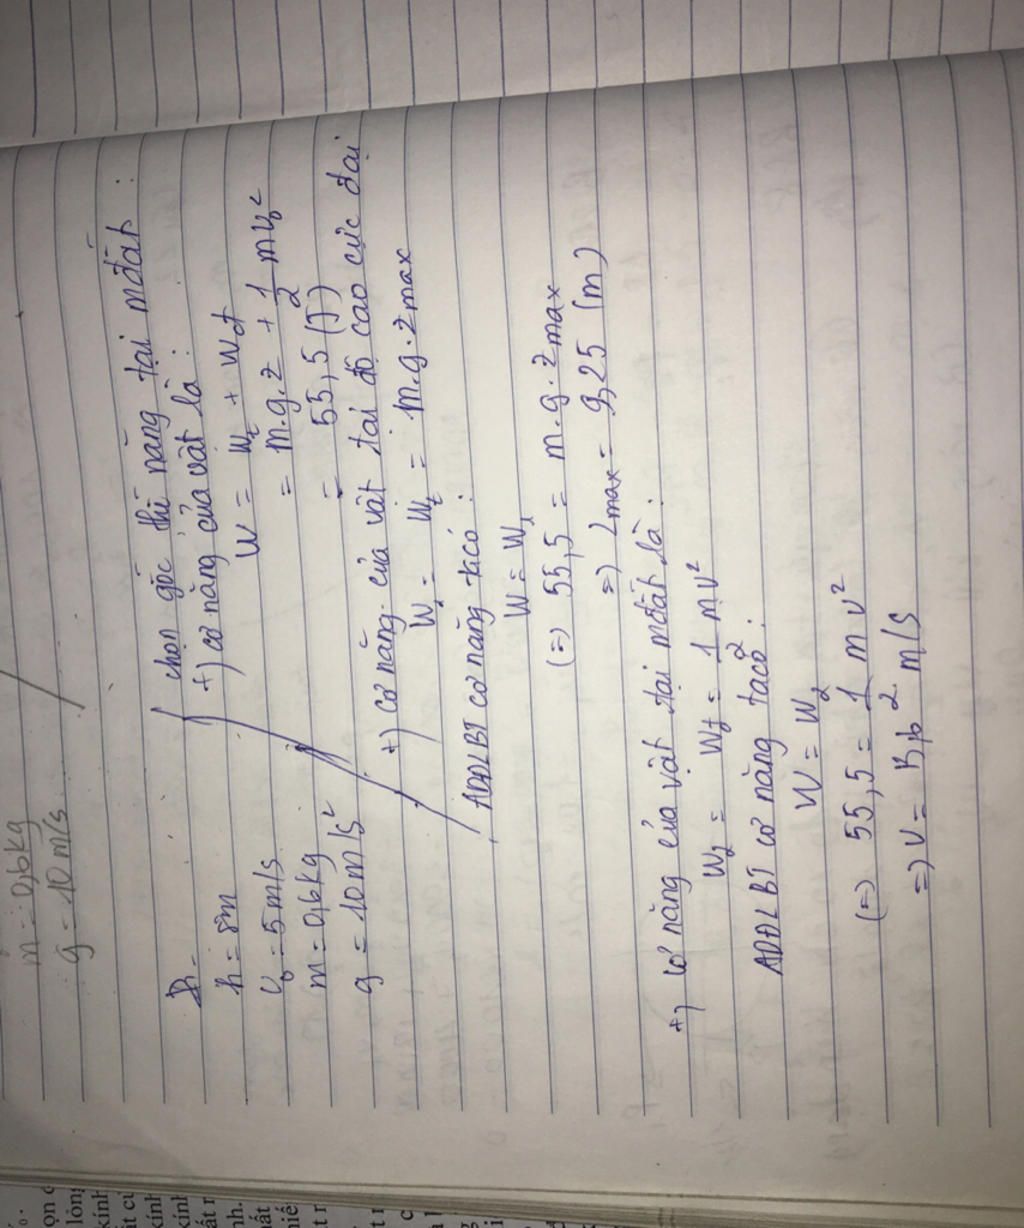 m = 0,6kg
g = 10m/s
h = 8m
v₀ = 5m/s
m = 0,6kg
g = 10m/s²
chọn gốc thế năng tại mđất :
+) cơ năng của vật là :
W = Wt + Wđ
= m.g.z + 1/2 mv₀²
= 55,5 (J)
+) cơ năng của vật tại độ cao cực đại
W₁ = Wt = m.g.zmax
ADĐLBT cơ năng tacó :
W = W₁
(=) 55,5 = m.g.zmax
=) zmax = 9,25 (m)
+) cơ năng của vật tại mđất là :
W₂ = Wđ = 1/2 mv²
ADĐLBT cơ năng tacó :
W = W₂
(=) 55,5 = 1/2 mv²
=) v = 13,6 m/s
ọn c
lỏng
kính
ất cụ
kính
kính
ất r
nh.
nất